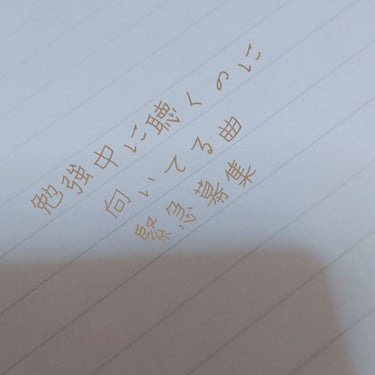 勉強中に聴くのに
向いてる曲
緊急募集